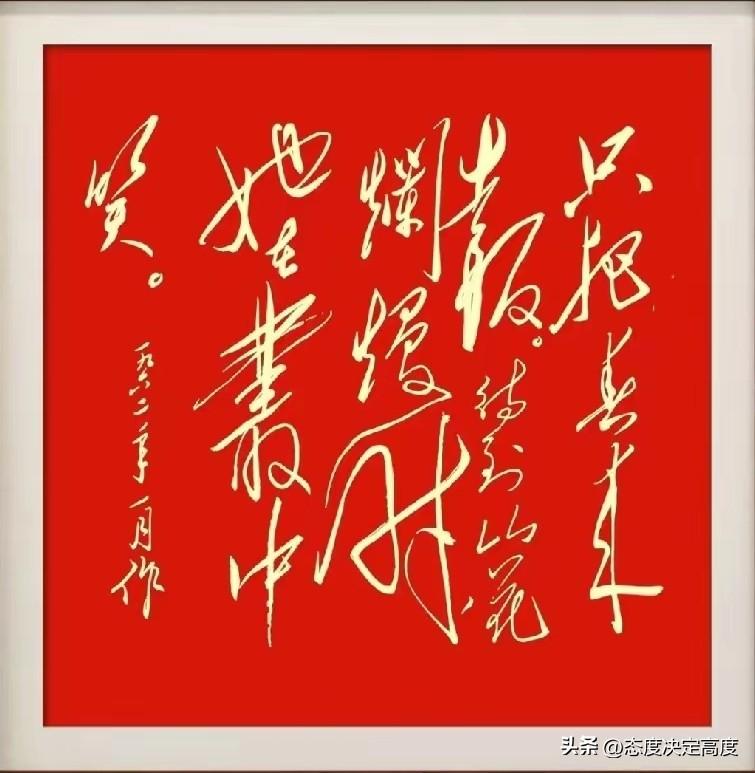 只把春来
报。待到山花
爛熳时
她在叢中
笑。
一九六二年一月作
头条 @态度决定高度